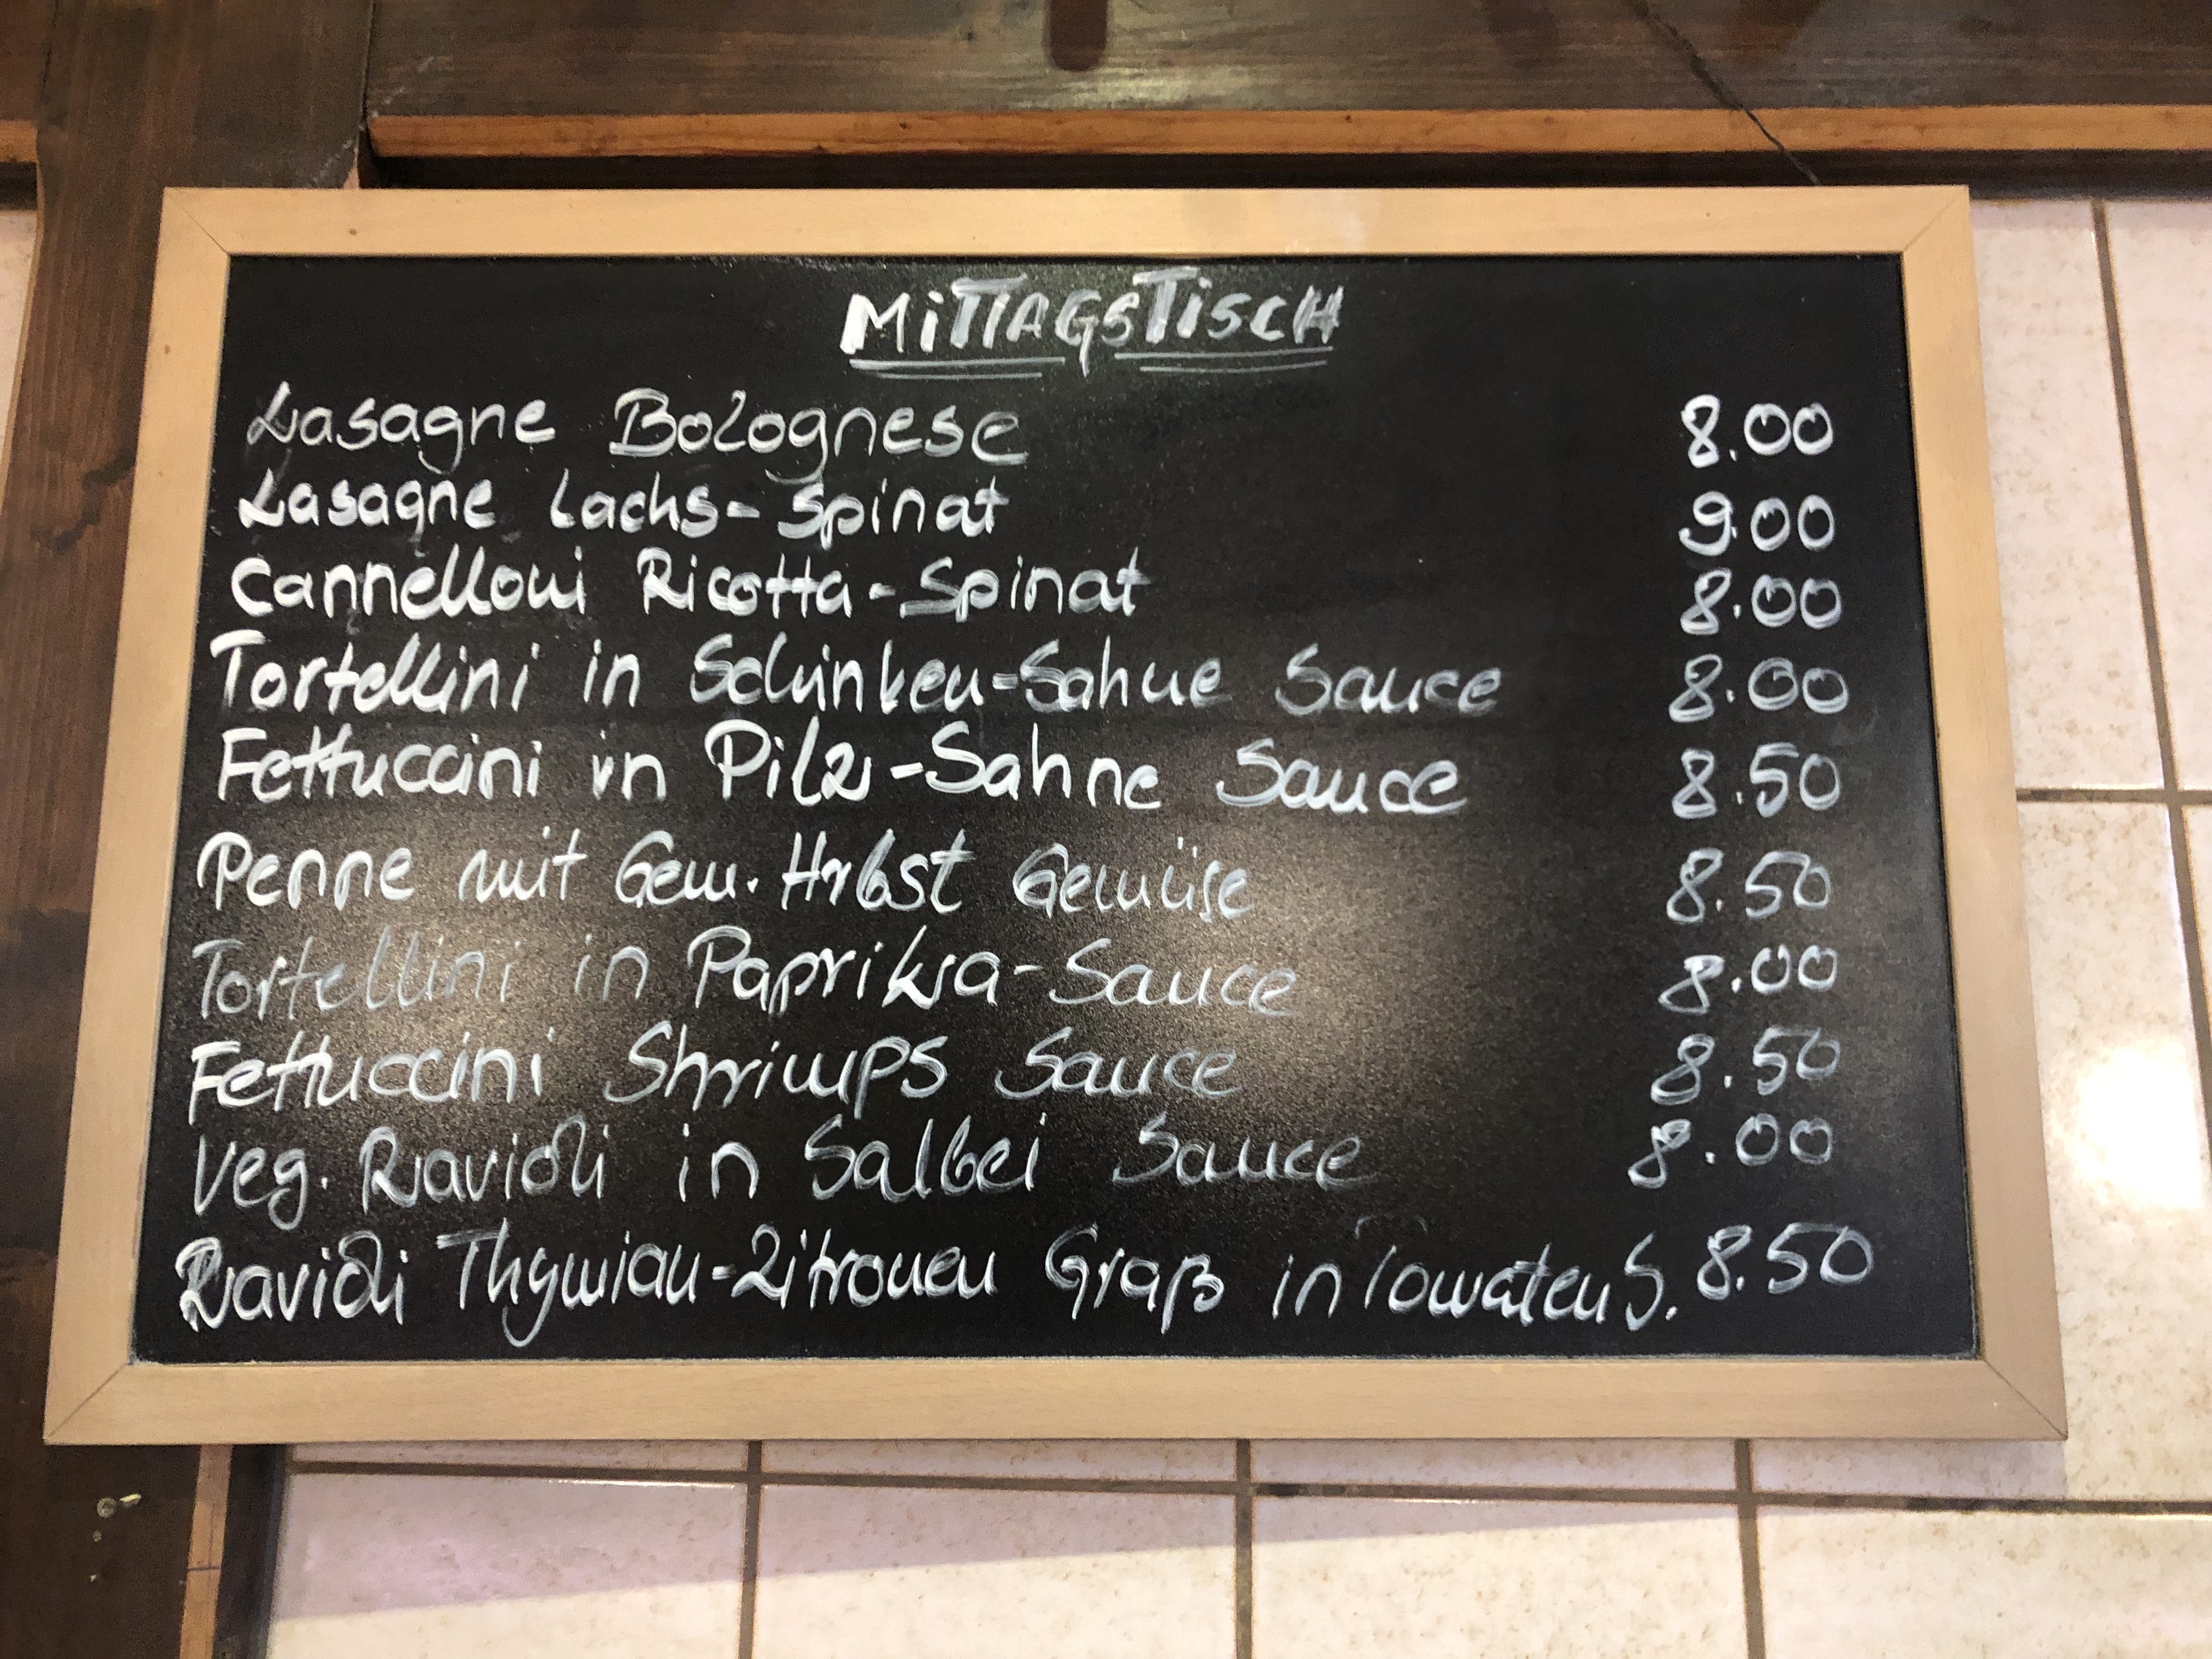 MiTTAGSTiSCH
Lasagne Bolognese 8.00
Lasagne Lachs-Spinat 9.00
Cannelloni Ricotta-Spinat 8.00
Tortellini in Schinken-Sahne Sauce 8.00
Fettuccini in Pilz-Sahne Sauce 8.50
Penne mit Gem. Hrbst Gemüse 8.50
Tortellini in Paprika-Sauce 8.00
Fettuccini Shrimps Sauce 8.50
Veg. Ravioli in Salbei Sauce 8.00
Ravioli Thymian-Zitronen Graß in Tomaten S. 8.50